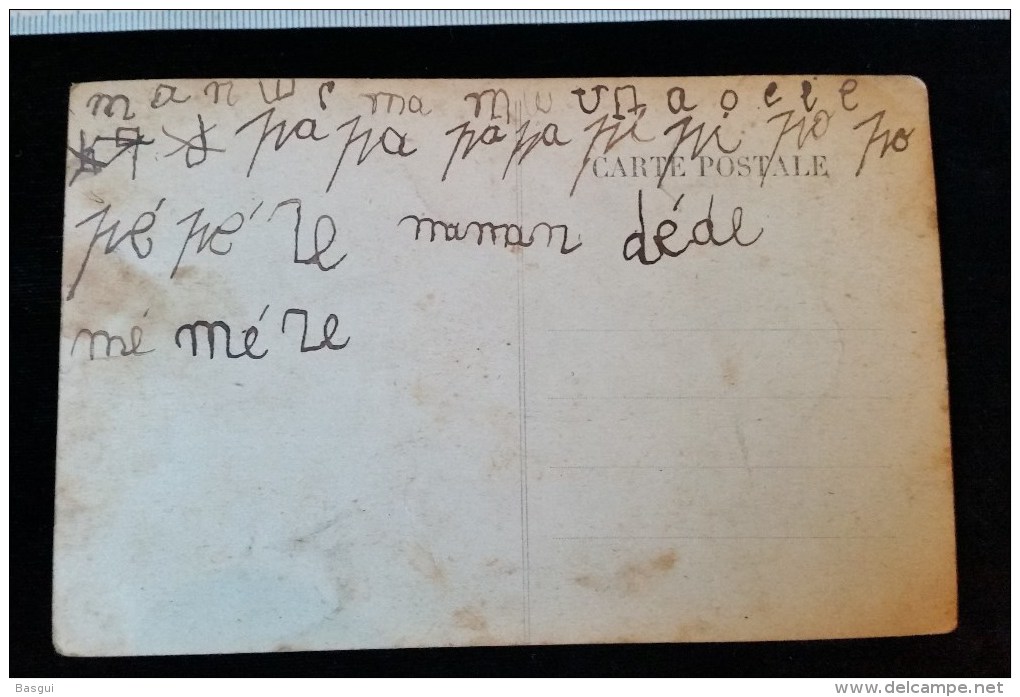 ma ma
pa pa pa pa pi pi po po
CARTE POSTALE
pé pé re maman déde
mé mé re
Basgui
www.delcampe.net